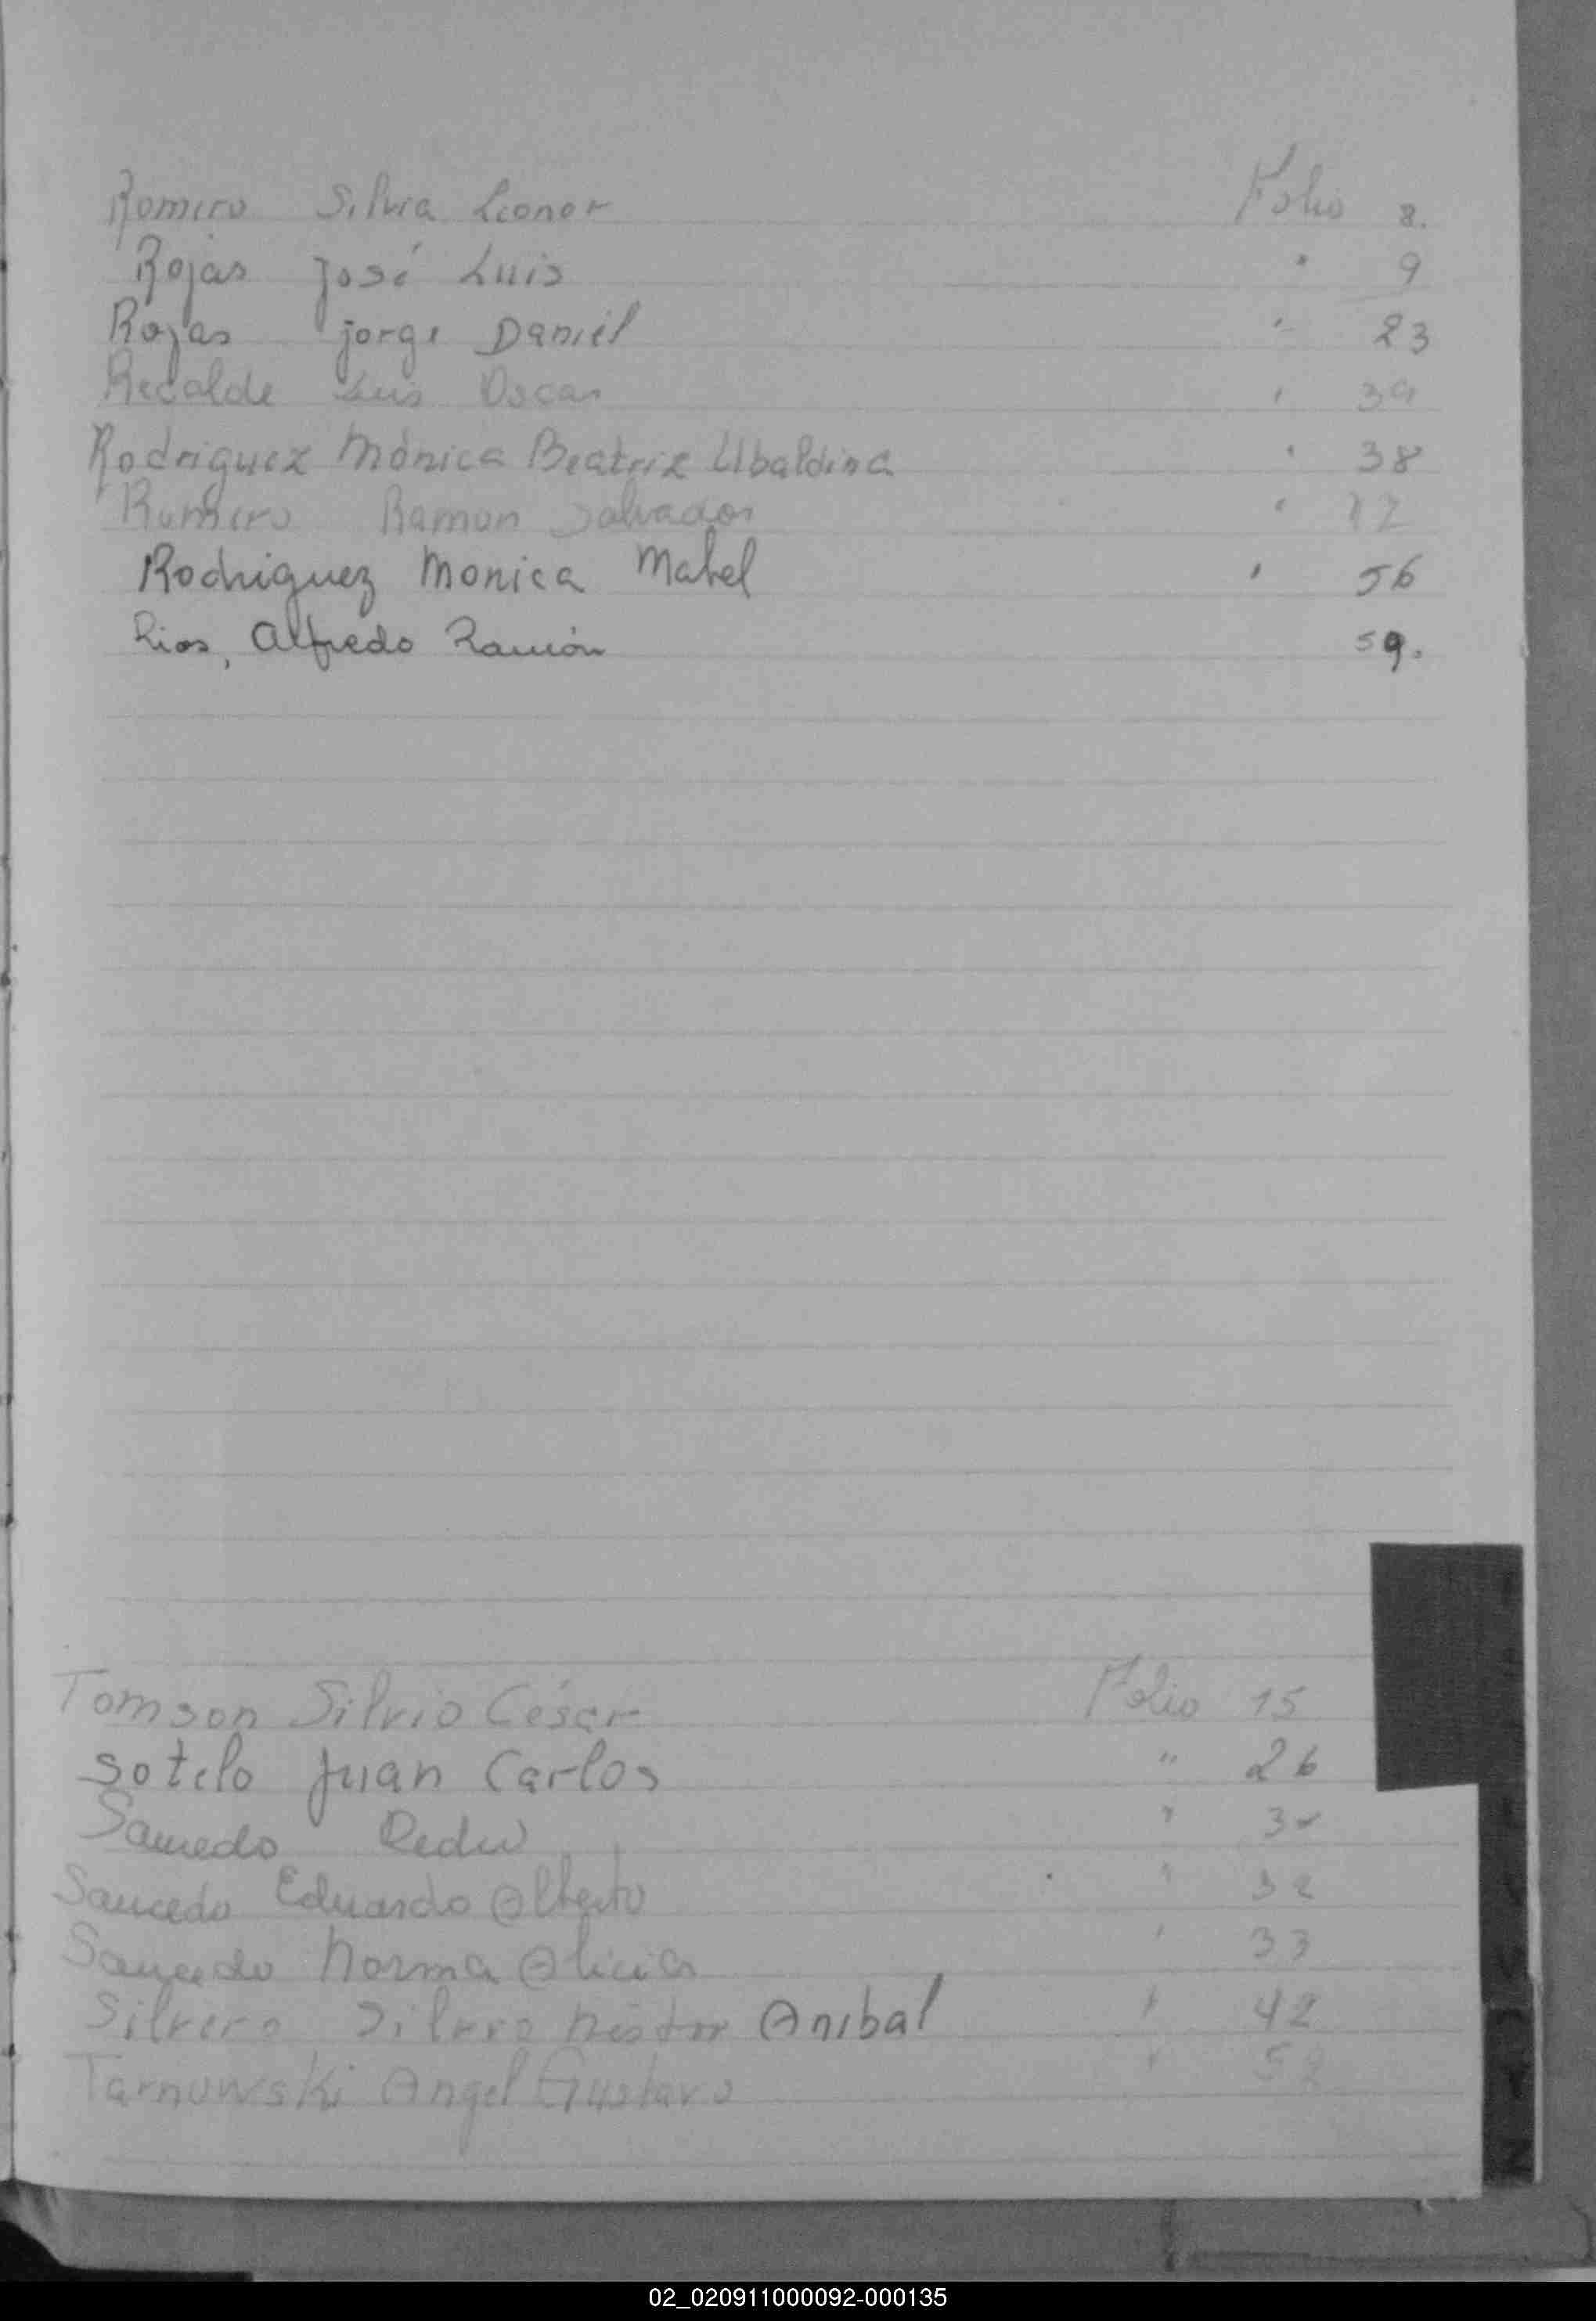 Romero Silvia Leonor Folio 8.
Rojas José Luis " 9
Rojas jorge Daniel " 23
Recalde Luis Oscar " 39
Rodriguez Mónica Beatriz Ubaldina " 38
Romero Ramon Salvador "
Rodriguez Monica Mabel " 56
Rios, Alfredo Ramón 59.
Tomson Silvio César Folio 15
Sotelo Juan Carlos " 26
Saucedo "
Saucedo Eduardo Alberto " 32
Saucedo Norma Alicia " 33
Silvero Silvero Néstor Anibal " 42
Tarnowski Angel Gustavo " 52
02_020911000092-000135